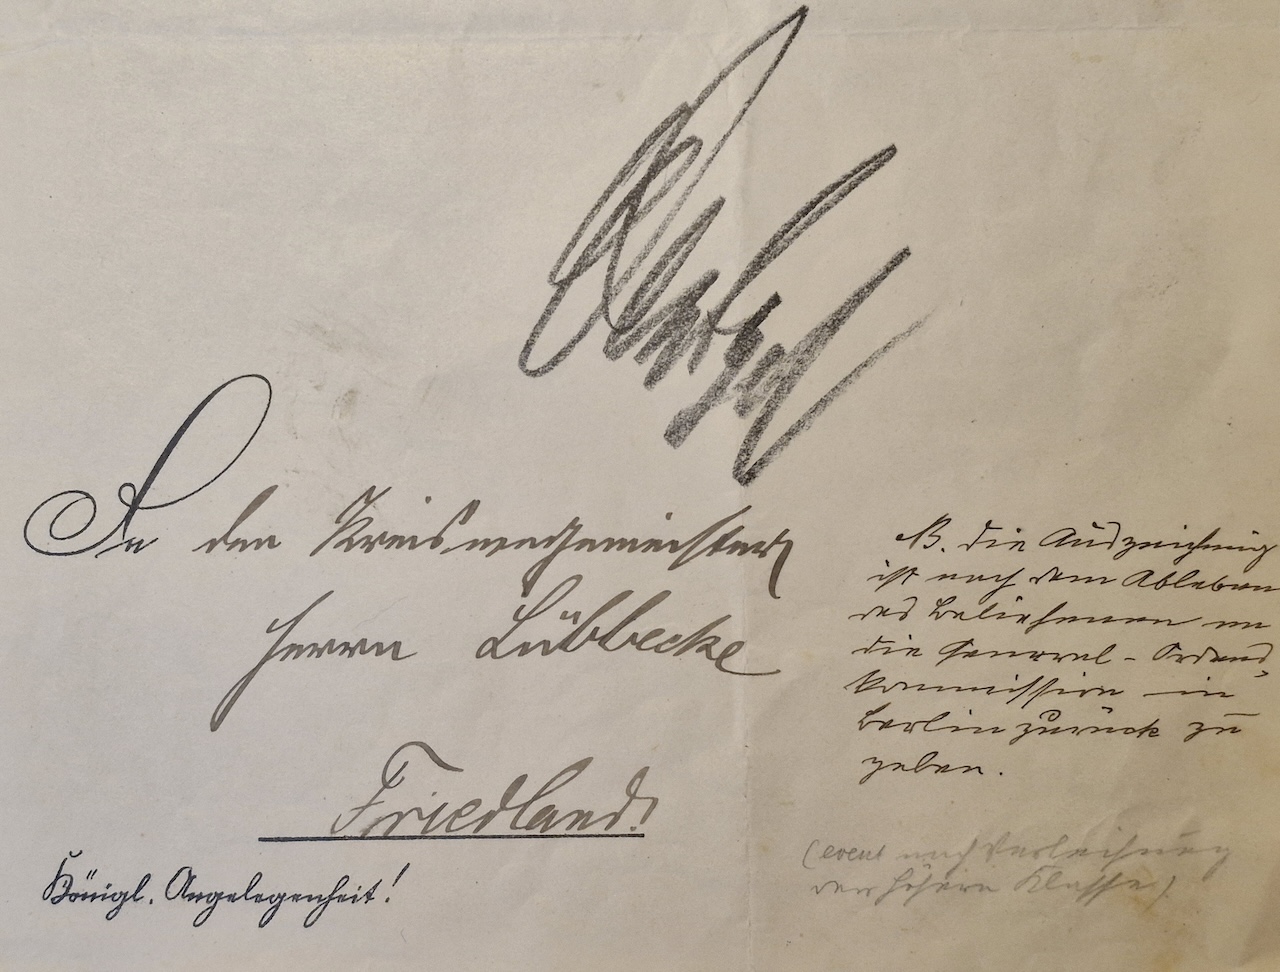 An den Kreiswegemeister
Herrn Lübbecke
Friedland.
Königl. Angelegenheit!
NB. Die Auszeichnung
ist nach dem Ableben
des Beliehenen an
die General-Ordens-
kommission in
Berlin zurück zu
geben.
(event nach Verleihung
der höhern Klasse)